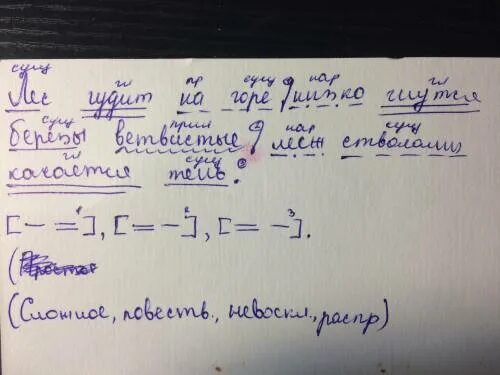 сущ гл пр сущ нар гл
Лес гудит на горе, низко гнутся
сущ прил нар сущ
березы ветвистые, меж стволами
гл сущ
качается тень.
[— =]¹, [= —]², [= —]³.
(
(Сложное, повеств., невоскл., распр)